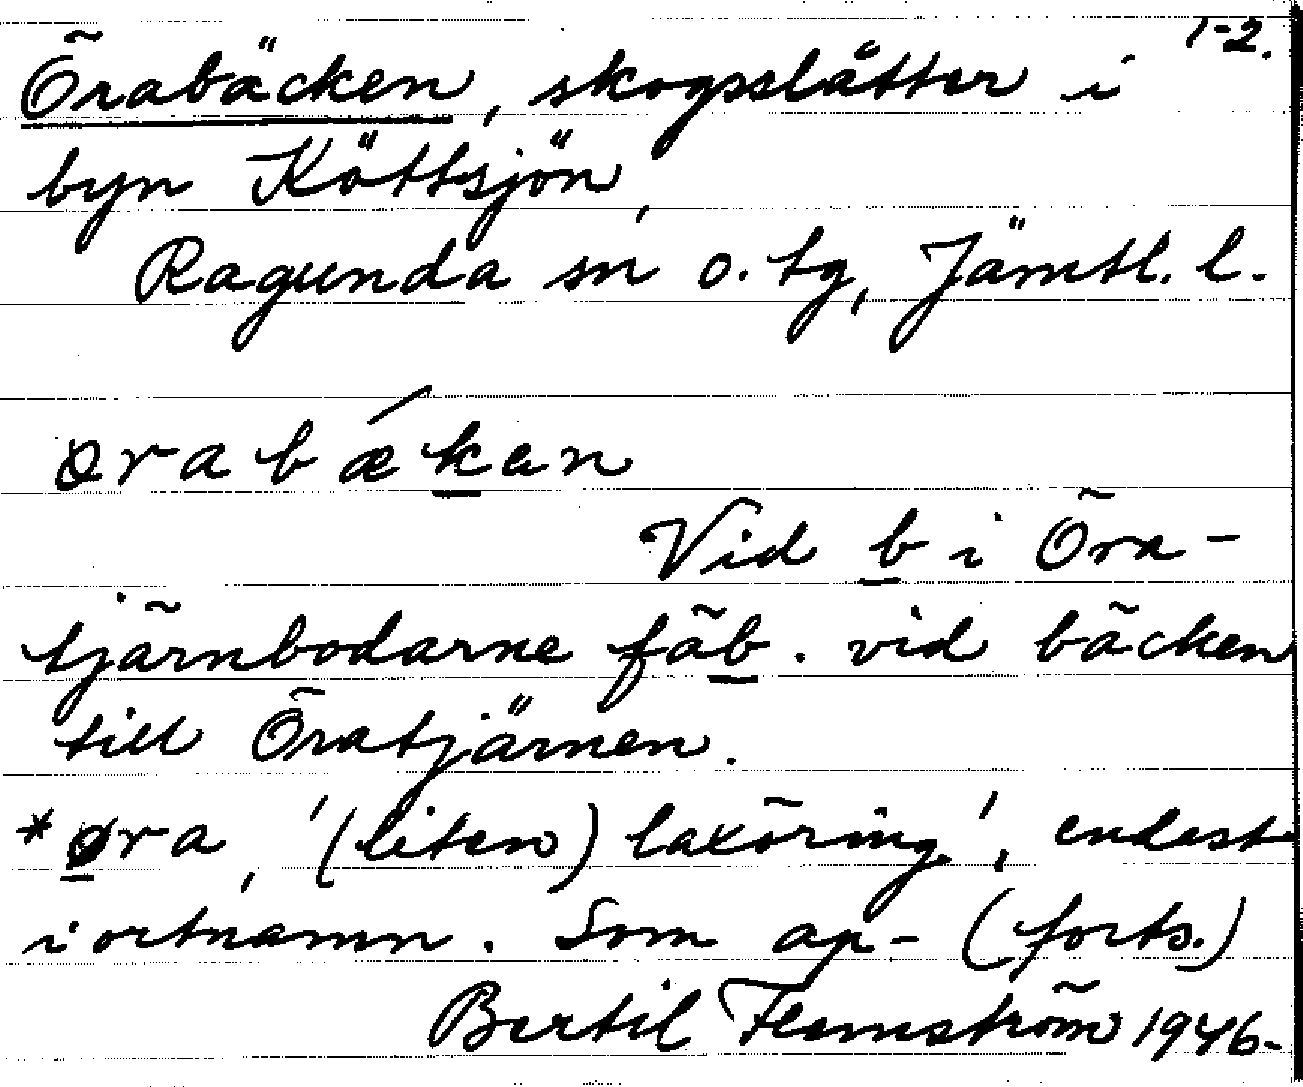 1-2.
Örabäcken, skogsslåtter i
byn Köttsjön,
Ragunda sn o. tg, Jämtl. l.
øra bǽken
Vid b i Öra-
tjärnbodarne fäb. vid bäcken
till Öratjärnen.
*øra, '(liten) laxöring', endast
i ortnamn. Som ap- (forts.)
Bertil Flemström 1946-